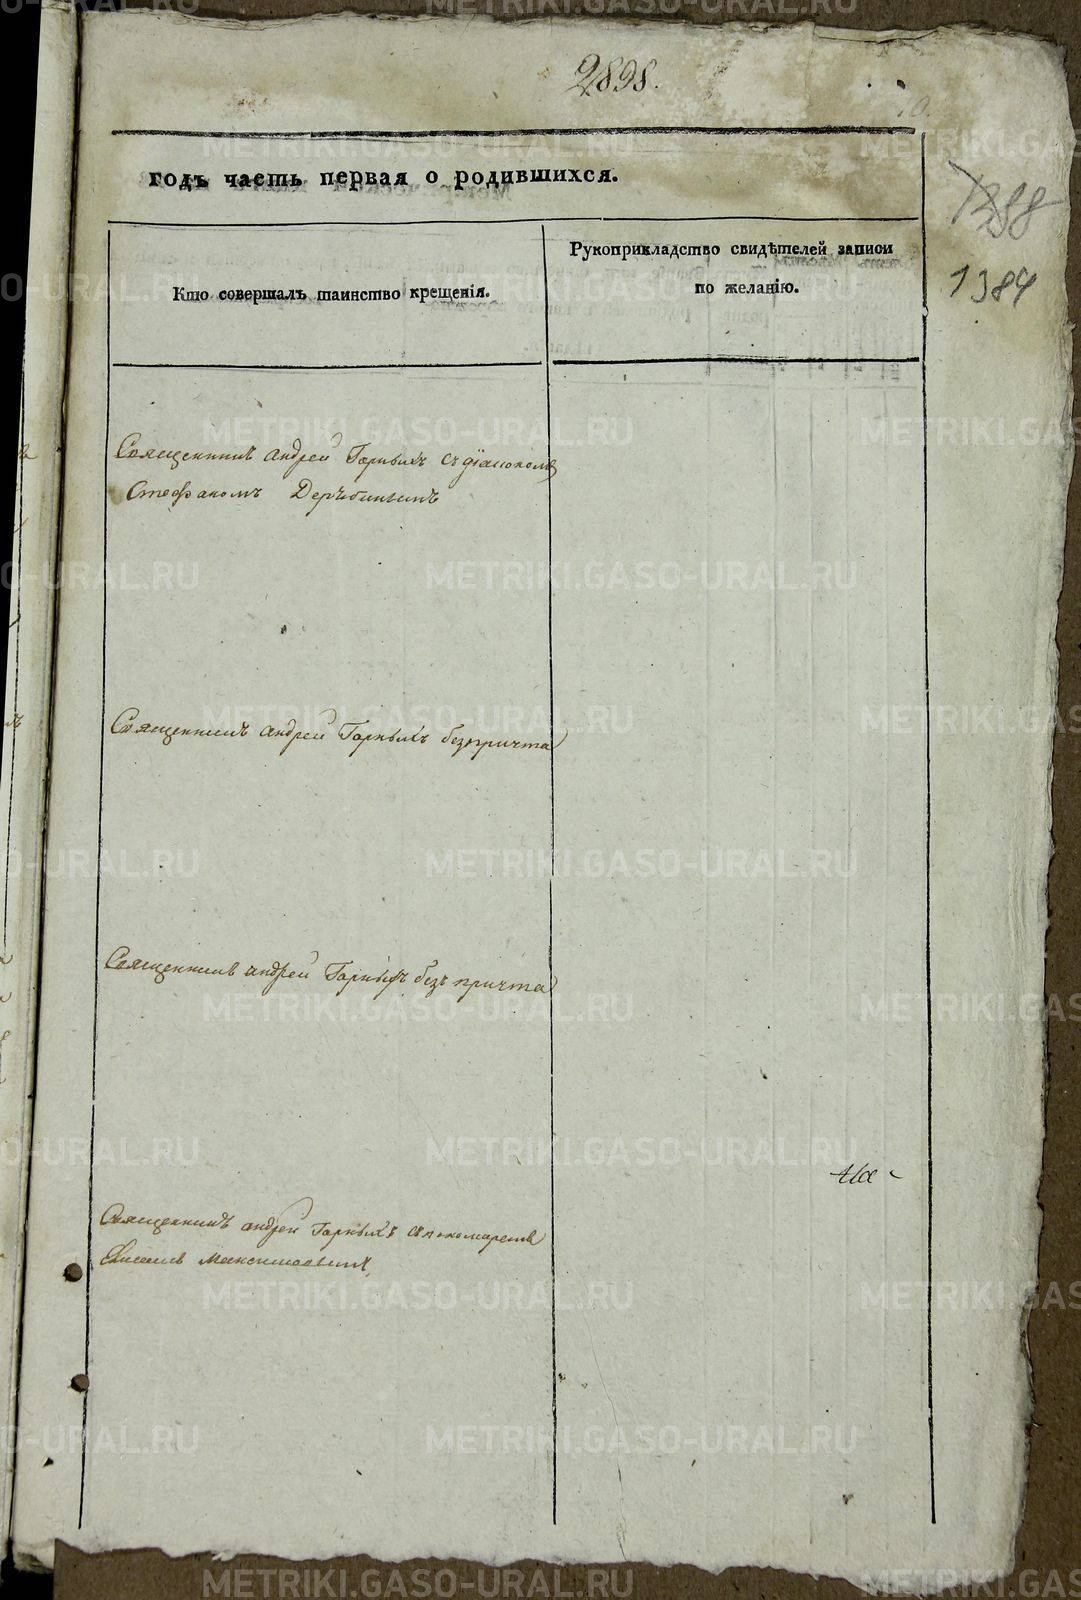 2898.
годъ часть первая о родившихся.
1388
1384
Кто совершалъ таинство крещенія.
Рукоприкладство свидѣтелей записи
по желанію.
Священникъ андрей Горныхъ съ діакономъ
Стефаномъ Дерябинымъ
Священникъ андрей Горныхъ безпричта
Священникъ андрей Горныхъ безъ причта
Священникъ андрей Горныхъ спономаремъ
Максимовымъ
METRIKI.GASO-URAL.RU